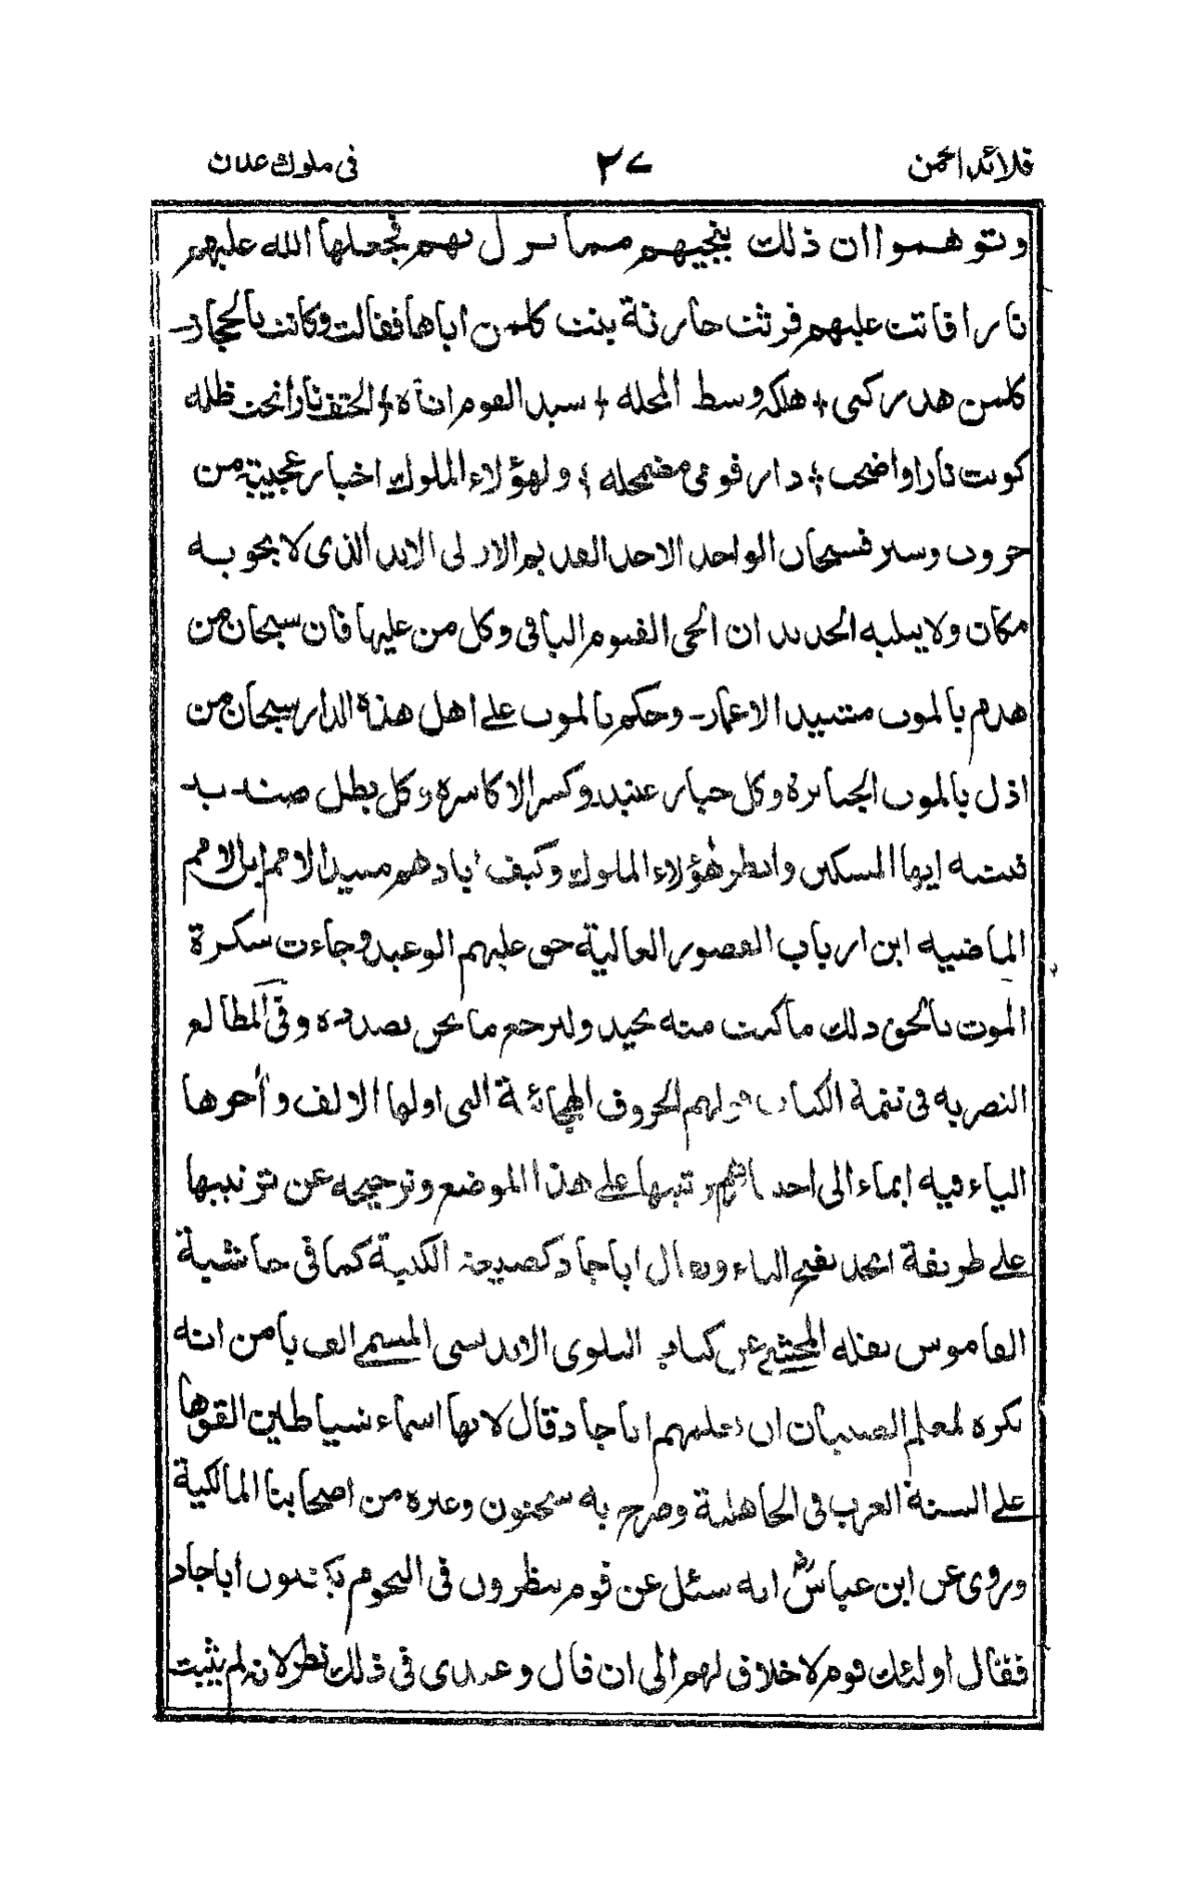 قلائد الجمن ٢٧ في ملوك عدن
وتوهموا ان ذلك ينجيهم مما نزل بهم فجعلها الله عليهم
نارا فاتت عليهم فرثت حارثة بنت كلمن اباها فقالت وكانت بالحجاز
كلمن هد ركبي + هلكه وسط المحله + سيد القوم اتاه + الحتف نارا تحت ظله
كونت نارا واضحى + دار قومي مضمحله + ولهؤلاء الملوك اخبار عجيبة من
حروب وسير فسبحان الواحد الاحد القديم الازلي الابد الذي لا يحويه
مكان ولا يبليه الجديدان الحى القيوم الباقي وكل من عليها فان سبحان من
هدم بالموت مشيد الاعمار وحكم بالموت على اهل هذه الدار سبحان من
اذل بالموت الجبابرة وكل جبار عنيد وكسر الاكاسرة وكل بطل صنديد
فتنبه ايها المسكين وانظر هؤلاء الملوك وكيف ابادهم مبيد الامم اين الامم
الماضيه اين ارباب القصور العالية حق عليهم الوعيد وجاءت سكرة
الموت بالحق ذلك ما كنت منه تحيد ولنرجع ما نحن بصدده وفي المطالع
النصريه في تتمة الكتاب قولهم الحروف الهجائية التى اولها الالف وآخرها
الياء فيه ايماء الى احد ترتيبها على هذا الموضع وترجيحه عن ترتيبها
على طريقة ابجد بفتح الباء ويقال اباجاد كصيغة الكنية كما في حاشية
القاموس نقله المحشي عن كتاب البلوى الاندلسى المسمى الف با من انه
يكره لمعلم الصبيان ان يعلمهم اباجاد قال لانها اسماء شياطين القوها
على السنة العرب في الجاهلية وصرح به سحنون وغيره من اصحابنا المالكية
وروى عن ابن عباسؓ انه سئل عن قوم ينظرون في النجوم يكتبون اباجاد
فقال اولئك قوم لا خلاق لهم الى ان قال وعندى في ذلك نظر لانه لم يثبت